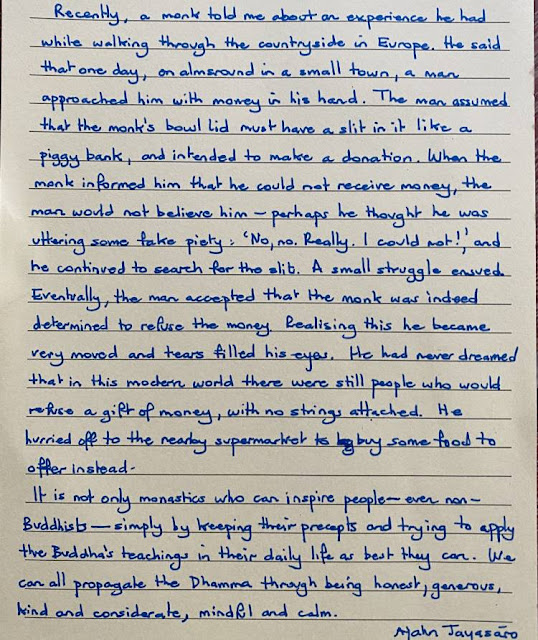 Recently, a monk told me about an experience he had
while walking through the countryside in Europe. He said
that one day, on almsround in a small town, a man
approached him with money in his hand. The man assumed
that the monk's bowl lid must have a slit in it like a
piggy bank, and intended to make a donation. When the
monk informed him that he could not receive money, the
man would not believe him – perhaps he thought he was
uttering some fake piety: 'No, no. Really. I could not!', and
he continued to search for the slit. A small struggle ensued.
Eventually, the man accepted that the monk was indeed
determined to refuse the money. Realising this he became
very moved and tears filled his eyes. He had never dreamed
that in this modern world there were still people who would
refuse a gift of money, with no strings attached. He
hurried off to the nearby supermarket to buy some food to
offer instead.
It is not only monastics who can inspire people – even non-
Buddhists – simply by keeping their precepts and trying to apply
the Buddha's teachings in their daily life as best they can. We
can all propagate the Dhamma through being honest, generous,
kind and considerate, mindful and calm.
Ajahn Jayasāro